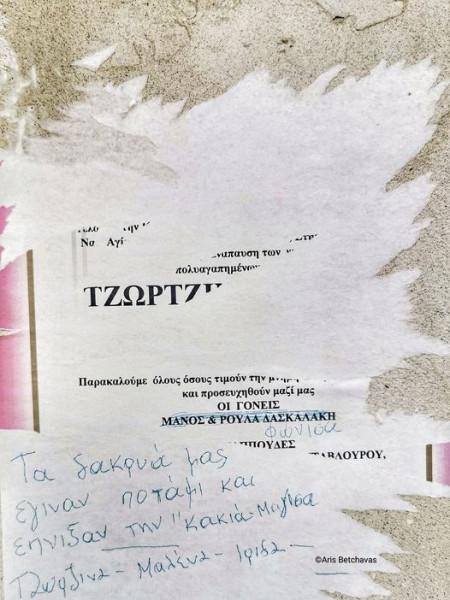 Να Αγί
νάπαυση των
πολυαγαπημένου
ΤΖΩΡΤΖ
Παρακαλούμε όλους όσους τιμούν την μνήμη
και προσευχηθούν μαζί μας
ΟΙ ΓΟΝΕΙΣ
ΜΑΝΟΣ & ΡΟΥΛΑ ΔΑΣΚΑΛΑΚΗ
φώνισα
ΠΠΟΥΔΕΣ
ΤΑΒΛΟΥΡΟΥ,
Τα δακρυά μας
έγιναν ποτάμι και
επνιξαν την "κακιά-Μαγισα
Τζώρτζινα - Μαλένα - Ιριδα -
©Aris Betchavas